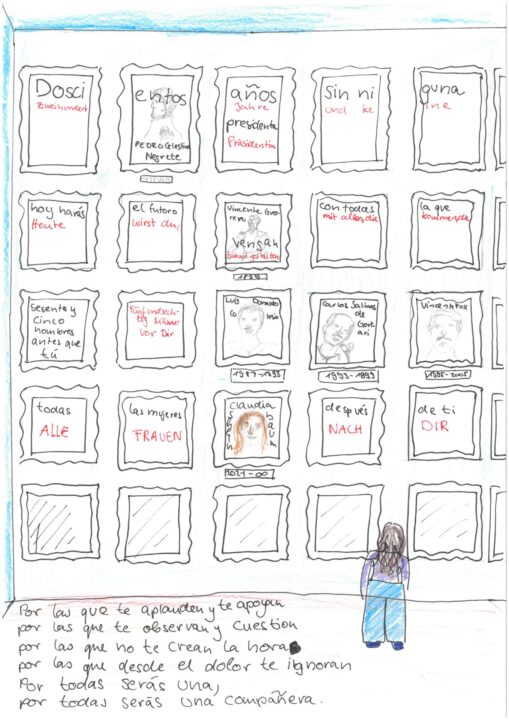 Dosci
Zweihundert
entos
PEDRO Celestino
Negrete
años
Jahre
presidenta
Präsidentin
Sin ni
und ke
guna
ine
hoy harás
Heute
el futoro
wirst du,
Vincente Gue
rrero
Vengan
con todas
mit allen, die
la que
kommende
Sesenta y
Cinco
hombres
antes que
tú
Fünfundsech-
zig Männer
vor Dir
Luis Donaldo
Carlos Salinas
de
Gort
ari
1993-1999
Vincente Fox
todas
ALLE
las mujeres
FRAUEN
Claudia
después
NACH
de ti
DIR
Por las que te aplauden y te apoyan
por las que te observan y cuestion
por las que no te crean la hora
por las que desde el dolor te ignoran
Por todas serás una,
por todas serás una compañera.